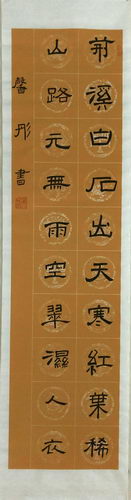 荊溪白石出天寒紅葉稀
山路元無雨空翠濕人衣
馨彤書